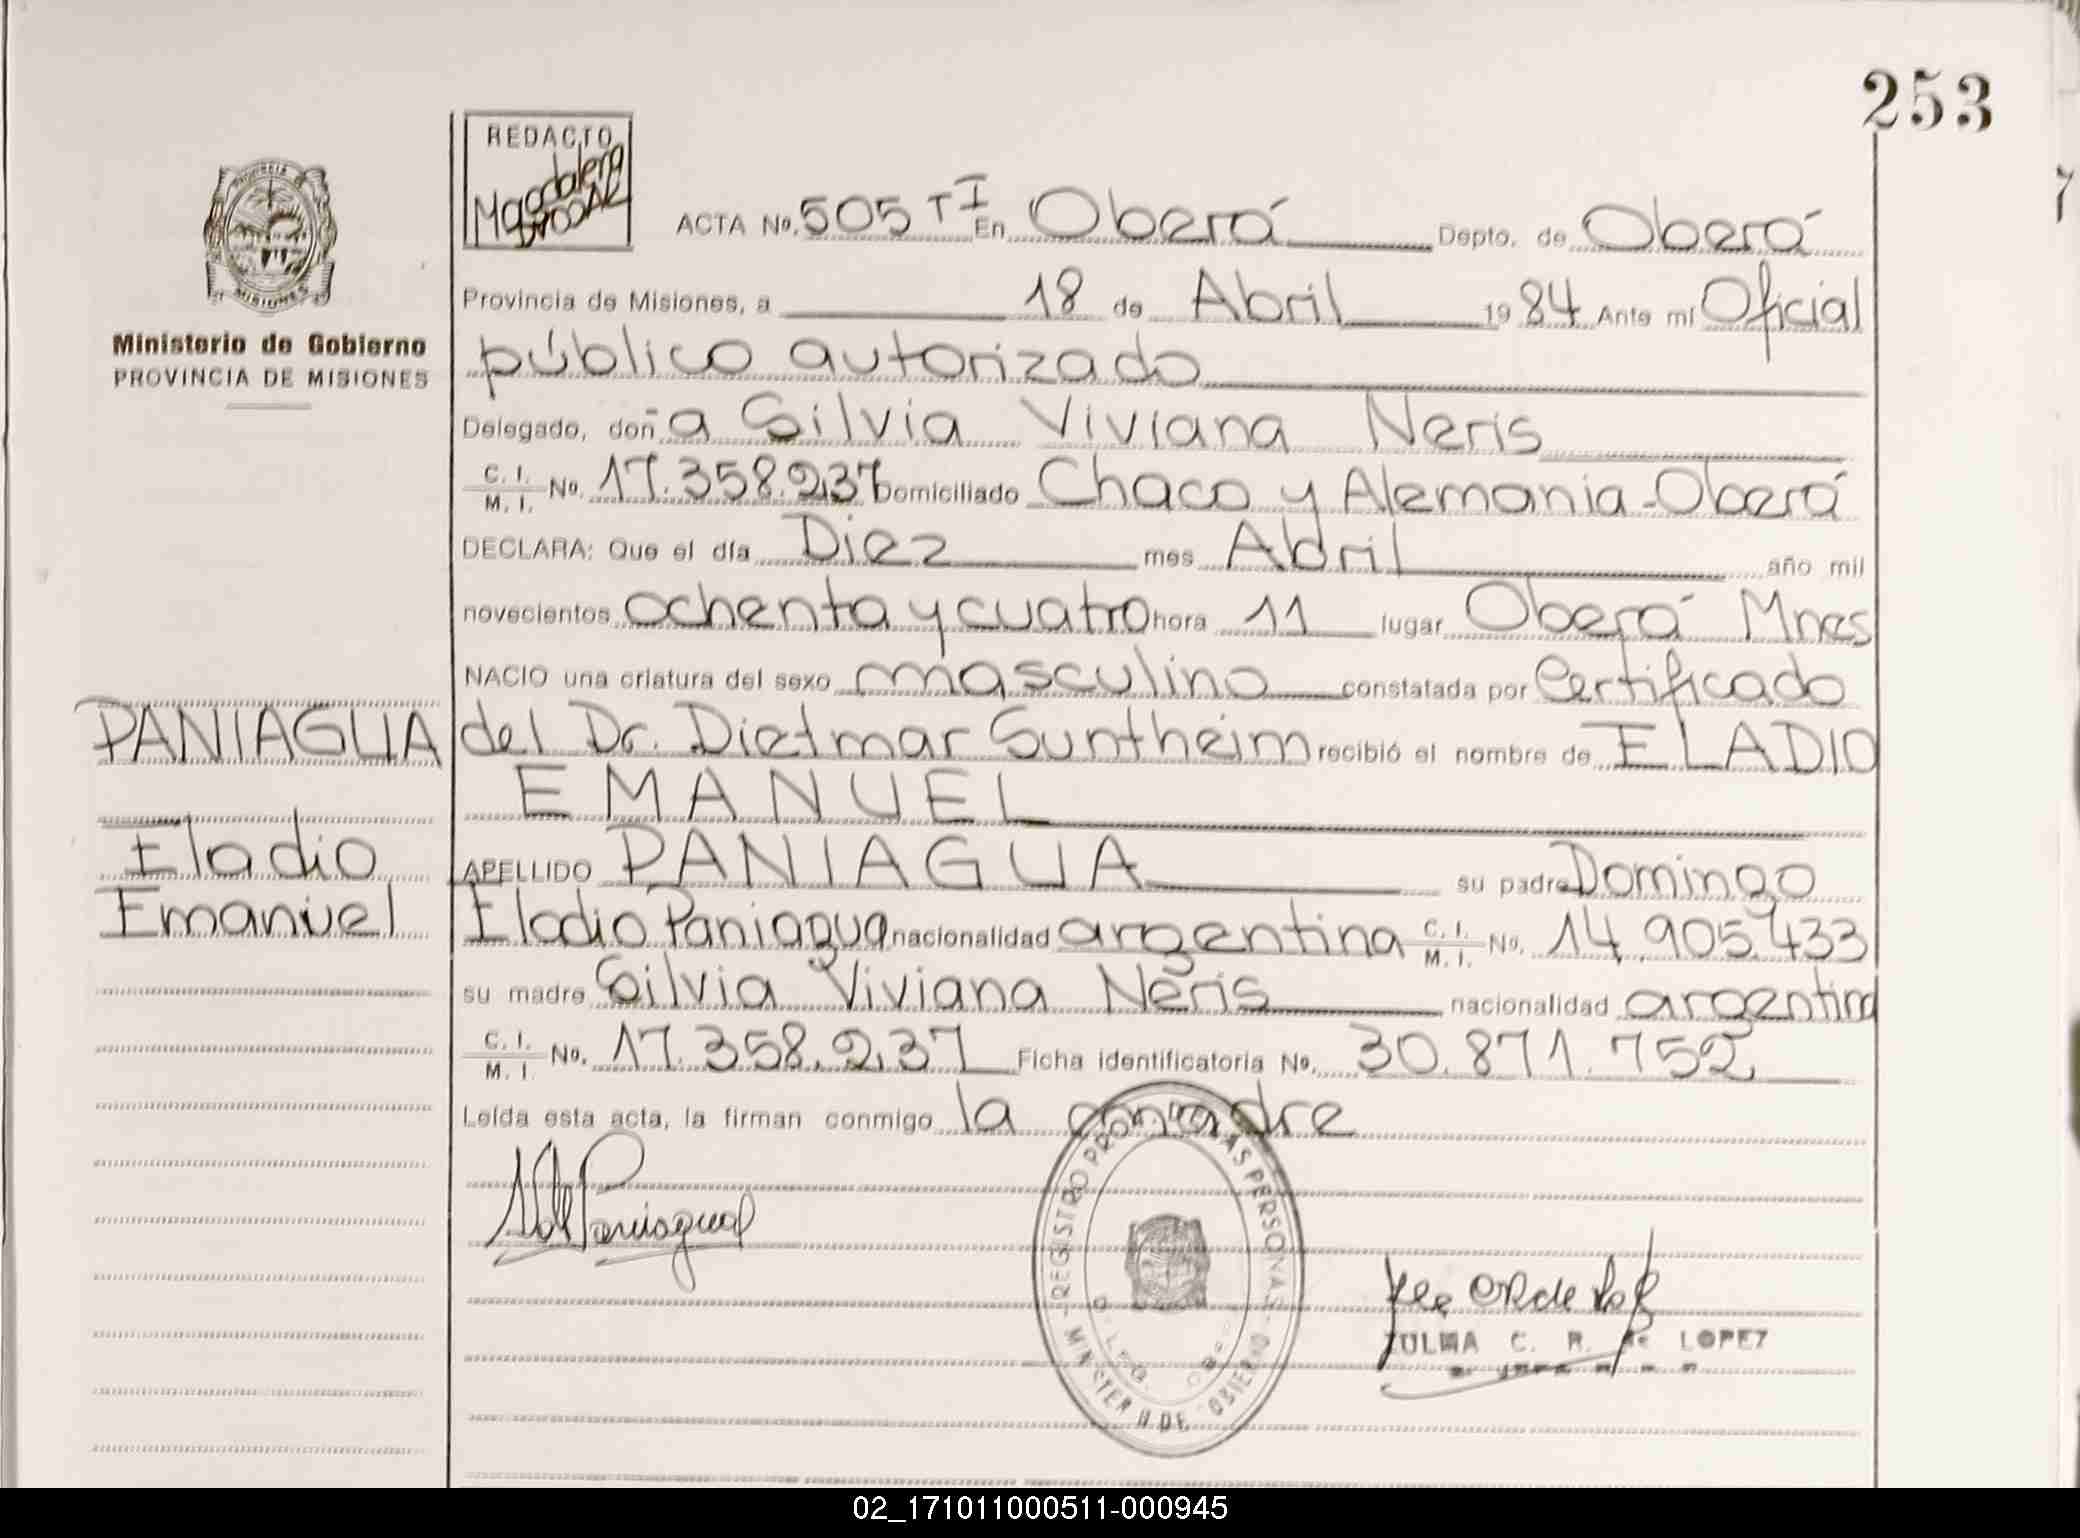 253
REDACTO
Magdalena
PROVINCIA DE
MISIONES
Ministerio de Gobierno
PROVINCIA DE MISIONES
ACTA No. 505 T I En Oberá Depto. de Oberá
Provincia de Misiones, a 18 de Abril 1984 Ante mí Oficial
público autorizado
Delegado, doña Silvia Viviana Neris
C. I. M. I. No. 17.358.237 Domiciliado Chaco y Alemania-Oberá
DECLARA: Que el día Diez mes Abril año mil
novecientos ochenta y cuatro hora 11 lugar Oberá Mnes
NACIO una criatura del sexo masculino constatada por Certificado
del Dr. Dietmar Suntheim recibió el nombre de ELADIO
EMANUEL
APELLIDO PANIAGUA su padre Domingo
Eladio Paniagua nacionalidad argentina C. I. M. I. No. 14.905.433
su madre Silvia Viviana Neris nacionalidad argentina
C. I. M. I. No. 17.358.237 Ficha identificatoria No. 30.871.752
Leída esta acta, la firman conmigo la
PANIAGUA
Eladio
Emanuel
Paniagua
REGISTRO PERSONAS
MINISTERIO DE GOBIERNO
ZULMA C. R. de LOPEZ
02_171011000511-000945